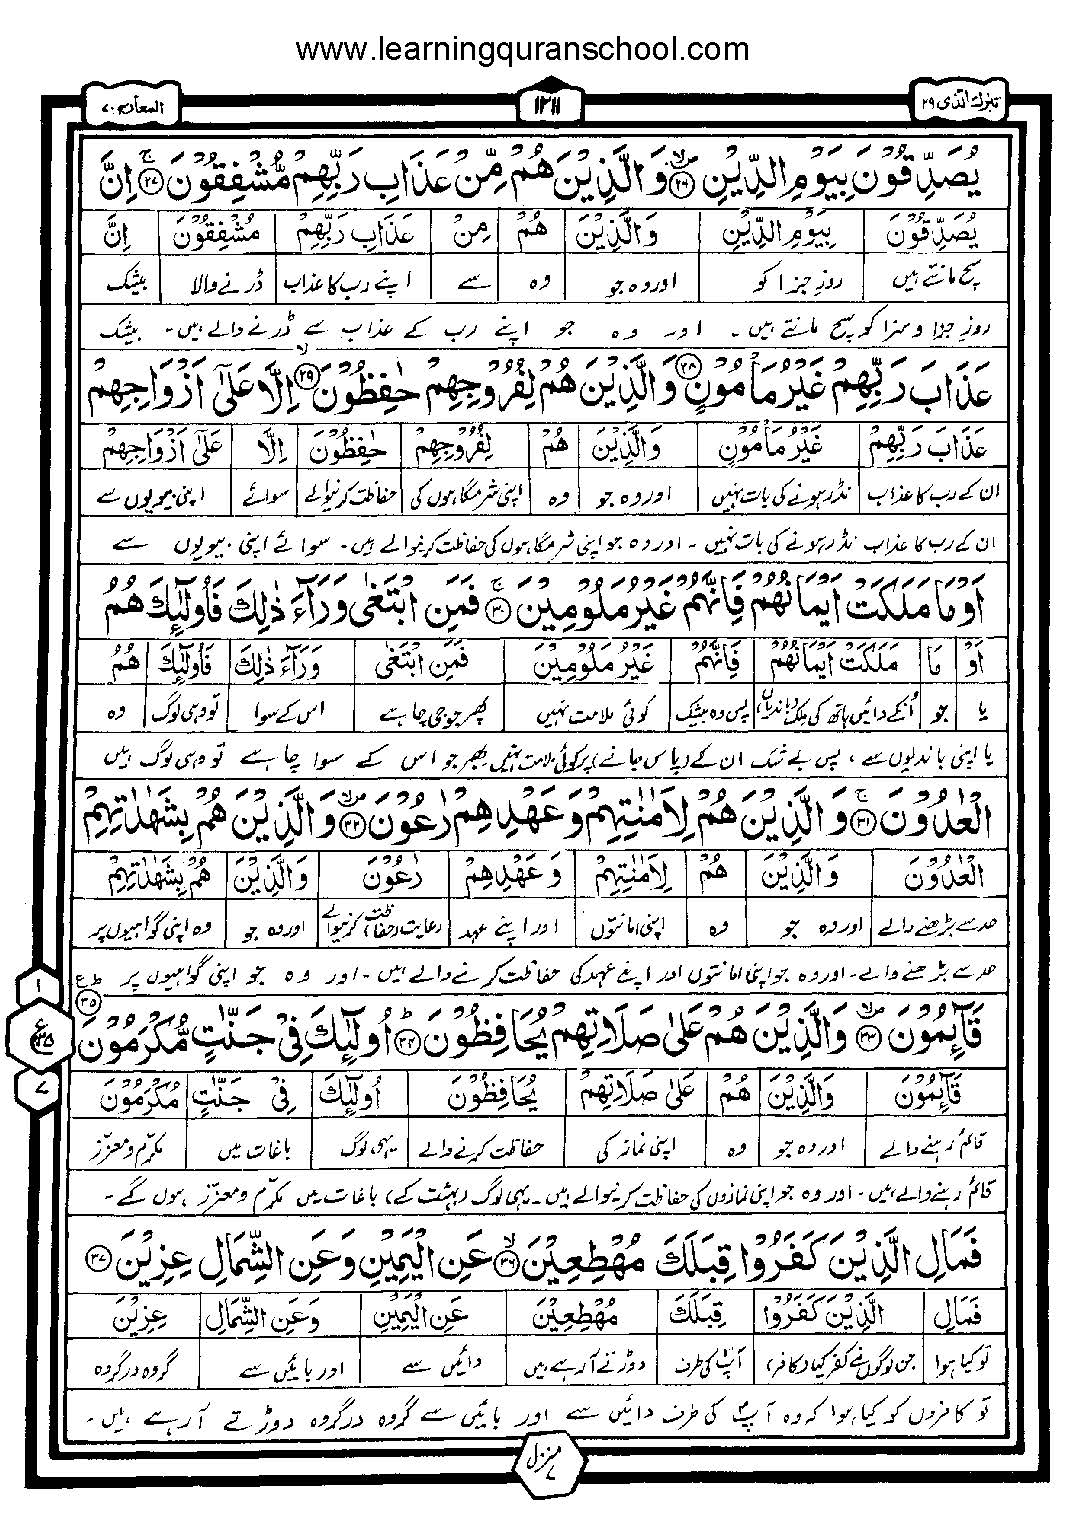 www.learningquranschool.com
تبٰرك الذی ۲۹
۱۲۱۱
المعارج ۷۰
يُصَدِّقُوْنَ بِيَوْمِ الدِّيْنِ ۝۲۶ وَالَّذِيْنَ هُمْ مِّنْ عَذَابِ رَبِّهِمْ مُّشْفِقُوْنَ ۝۲۷ اِنَّ
يُصَدِّقُوْنَ بِيَوْمِ الدِّيْنِ وَالَّذِيْنَ هُمْ مِنْ عَذَابِ رَبِّهِمْ مُشْفِقُوْنَ اِنَّ
سچ مانتے ہیں روزِ جزا کو اور وہ جو وہ سے اپنے رب کا عذاب ڈرنے والا بیشک
روزِ جزا و سزا کو سچ مانتے ہیں۔ اور وہ جو اپنے رب کے عذاب سے ڈرنے والے ہیں۔ بیشک
عَذَابَ رَبِّهِمْ غَيْرُ مَاْمُوْنٍ ۝۲۸ وَالَّذِيْنَ هُمْ لِفُرُوْجِهِمْ حٰفِظُوْنَ ۝۲۹ اِلَّا عَلٰٓى اَزْوَاجِهِمْ
عَذَابَ رَبِّهِمْ غَيْرُ مَاْمُوْنٍ وَالَّذِيْنَ هُمْ لِفُرُوْجِهِمْ حٰفِظُوْنَ اِلَّا عَلٰٓى اَزْوَاجِهِمْ
ان کے رب کا عذاب نڈر ہونے کی بات نہیں اور وہ جو وہ اپنی شرمگاہوں کی حفاظت کرنیوالے سوائے اپنی بیویوں سے
ان کے رب کا عذاب نڈر ہونے کی بات نہیں۔ اور وہ جو اپنی شرمگاہوں کی حفاظت کرنیوالے ہیں۔ سوائے اپنی بیویوں سے
اَوْ مَا مَلَكَتْ اَيْمَانُهُمْ فَاِنَّهُمْ غَيْرُ مَلُوْمِيْنَ ۝۳۰ فَمَنِ ابْتَغٰى وَرَآءَ ذٰلِكَ فَاُولٰٓئِكَ هُمُ
اَوْ مَا مَلَكَتْ اَيْمَانُهُمْ فَاِنَّهُمْ غَيْرُ مَلُوْمِيْنَ فَمَنِ ابْتَغٰى وَرَآءَ ذٰلِكَ فَاُولٰٓئِكَ هُمُ
یا جو اُنکے دائیں ہاتھ کی ملک (باندیاں) پس وہ بیشک کوئی ملامت نہیں پھر جو جی چاہے اس کے سوا تو وہی لوگ وہ
یا اپنی باندیوں سے، پس بے شک ان کے (پاس جانے) پر کوئی ملامت نہیں پھر جو اس کے سوا چاہے تو وہی لوگ ہیں
الْعٰدُوْنَ ۝۳۱ وَالَّذِيْنَ هُمْ لِاَمٰنٰتِهِمْ وَعَهْدِهِمْ رٰعُوْنَ ۝۳۲ وَالَّذِيْنَ هُمْ بِشَهٰدٰتِهِمْ
الْعٰدُوْنَ وَالَّذِيْنَ هُمْ لِاَمٰنٰتِهِمْ وَعَهْدِهِمْ رٰعُوْنَ وَالَّذِيْنَ هُمْ بِشَهٰدٰتِهِمْ
حد سے بڑھنے والے اور وہ جو وہ اپنی امانتوں اور اپنے عہد رعایت (حفاظت) کرنیوالے اور وہ جو وہ اپنی گواہیوں پر
حد سے بڑھنے والے۔ اور وہ جو اپنی امانتوں اور اپنے عہد کی حفاظت کرنے والے ہیں۔ اور وہ جو اپنی گواہیوں پر
قَآئِمُوْنَ ۝۳۳ وَالَّذِيْنَ هُمْ عَلٰى صَلَاتِهِمْ يُحَافِظُوْنَ ۝۳۴ اُولٰٓئِكَ فِيْ جَنّٰتٍ مُّكْرَمُوْنَ ۝۳۵
قَآئِمُوْنَ وَالَّذِيْنَ هُمْ عَلٰى صَلَاتِهِمْ يُحَافِظُوْنَ اُولٰٓئِكَ فِيْ جَنّٰتٍ مُكْرَمُوْنَ
قائم رہنے والے اور وہ جو وہ اپنی نماز کی حفاظت کرنے والے یہی لوگ باغات میں مکرّم و معزّز
قائم رہنے والے ہیں۔ اور وہ جو اپنی نمازوں کی حفاظت کرنیوالے ہیں۔ یہی لوگ (بہشت کے) باغات میں مکرّم و معزّز ہوں گے۔
فَمَالِ الَّذِيْنَ كَفَرُوْا قِبَلَكَ مُهْطِعِيْنَ ۝۳۶ عَنِ الْيَمِيْنِ وَعَنِ الشِّمَالِ عِزِيْنَ ۝۳۷
فَمَالِ الَّذِيْنَ كَفَرُوْا قِبَلَكَ مُهْطِعِيْنَ عَنِ الْيَمِيْنِ وَعَنِ الشِّمَالِ عِزِيْنَ
تو کیا ہوا جن لوگوں نے کفر کیا (کافر) آپؐ کی طرف دوڑتے آرہے ہیں دائیں سے اور بائیں سے گروہ در گروہ
تو کافروں کو کیا ہوا کہ وہ آپؐ کی طرف دائیں سے اور بائیں سے گروہ در گروہ دوڑتے آرہے ہیں۔
۱
ع
۷
منزل ۷